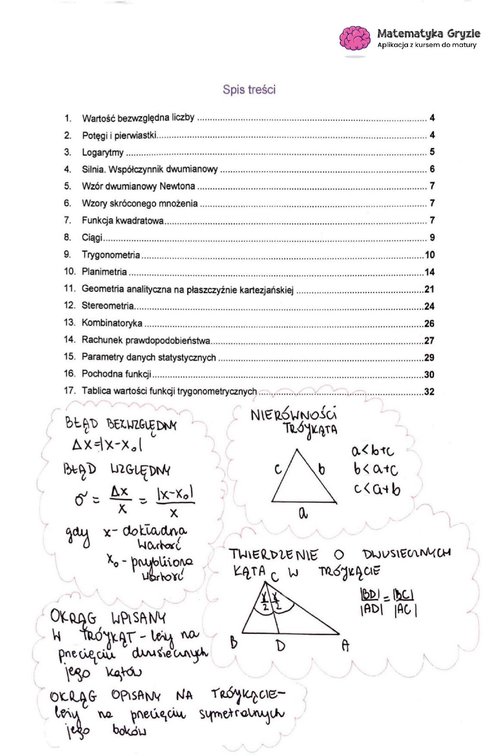 Matematyka Gryzie
Aplikacja z kursem do matury
Spis treści
1. Wartość bezwzględna liczby ... 4
2. Potęgi i pierwiastki... 4
3. Logarytmy ... 5
4. Silnia. Współczynnik dwumianowy ... 6
5. Wzór dwumianowy Newtona ... 7
6. Wzory skróconego mnożenia ... 7
7. Funkcja kwadratowa... 7
8. Ciągi... 9
9. Trygonometria ... 10
10. Planimetria ... 14
11. Geometria analityczna na płaszczyźnie kartezjańskiej ... 21
12. Stereometria... 24
13. Kombinatoryka ... 26
14. Rachunek prawdopodobieństwa... 27
15. Parametry danych statystycznych ... 29
16. Pochodna funkcji... 30
17. Tablica wartości funkcji trygonometrycznych ... 32
BŁĄD BEZWZGLĘDNY
Δx=|x-x₀|
BŁĄD WZGLĘDNY
σ = Δx/x = |x-x₀|/x
gdy x - dokładna
wartość
x₀ - przybliżona
wartość
NIERÓWNOŚCI
TRÓJKĄTA
c b
a
a<b+c
b<a+c
c<a+b
TWIERDZENIE O DWUSIECZNYCH
KĄTA W TRÓJKĄCIE
C
γ/2 γ/2
B D A
|BD|/|AD| = |BC|/|AC|
OKRĄG WPISANY
W TRÓJKĄT - leży na
przecięciu dwusiecznych
jego kątów
OKRĄG OPISANY NA TRÓJKĄCIE-
leży na przecięciu symetralnych
jego boków